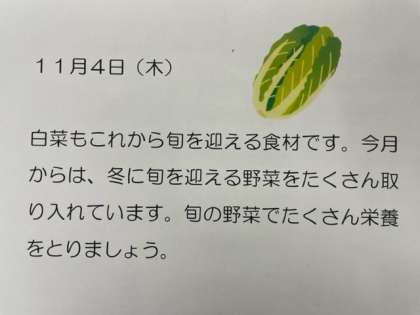 １１月４日（木）
白菜もこれから旬を迎える食材です。今月
からは、冬に旬を迎える野菜をたくさん取
り入れています。旬の野菜でたくさん栄養
をとりましょう。